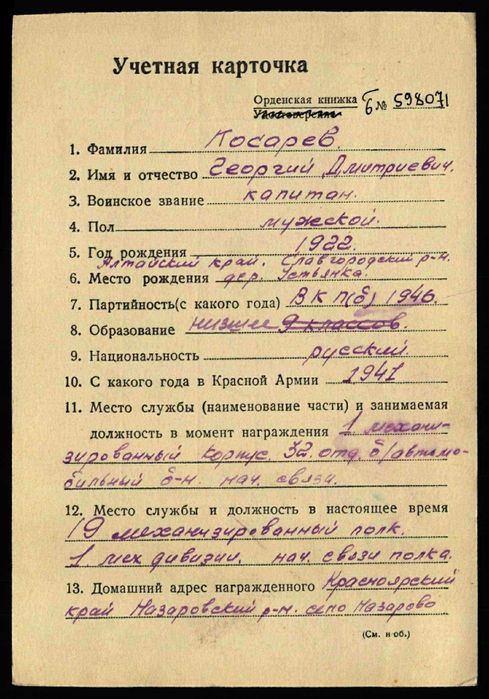 Учетная карточка
Орденская книжка Б № 598071
Удостоверение
1. Фамилия Косарев.
2. Имя и отчество Георгий Дмитриевич.
3. Воинское звание капитан.
4. Пол мужской.
5. Год рождения 1922.
Алтайский край. Славгородский р-н.
6. Место рождения дер. Устьянка.
7. Партийность (с какого года) ВКП(б) 1946.
8. Образование низшее 9 классов.
9. Национальность русский.
10. С какого года в Красной Армии 1941
11. Место службы (наименование части) и занимаемая
должность в момент награждения 1 механи-
зированный корпус. 32 отд. б/автомо-
бильный б-н. нач. связи.
12. Место службы и должность в настоящее время
19 механизированный полк.
1 мех дивизии. нач. связи полка.
13. Домашний адрес награжденного Красноярский
край Назаровский р-н. село Назарово
(См. и об.)